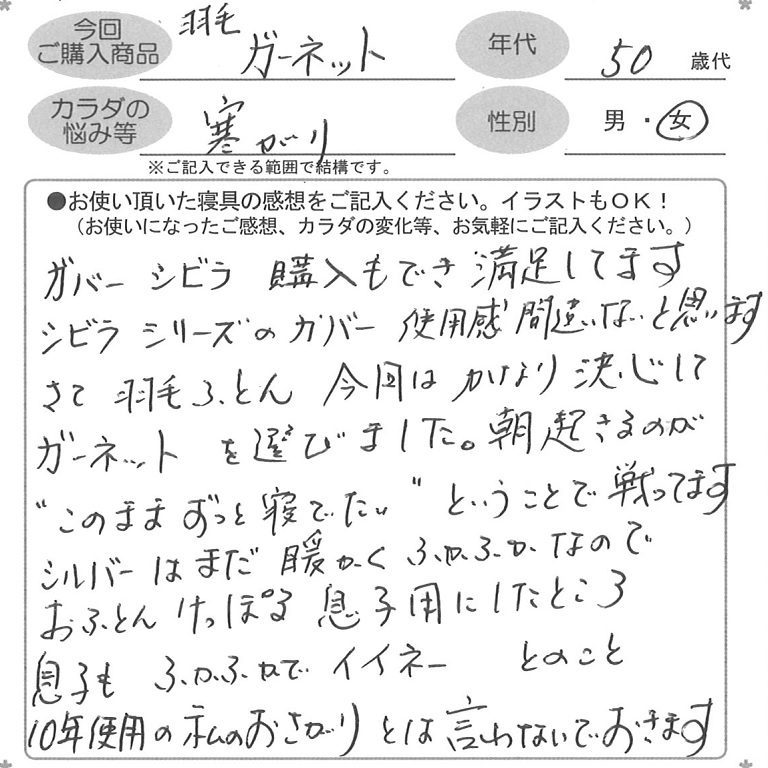 今回
ご購入商品
羽毛
ガーネット
年代
50 歳代
カラダの
悩み等
寒がり
性別
男・女
※ご記入できる範囲で結構です。
●お使い頂いた寝具の感想をご記入ください。イラストもOK！
（お使いになったご感想、カラダの変化等、お気軽にご記入ください。）
カバー シビラ 購入もでき 満足してます
シビラ シリーズの カバー 使用感 間違いないと思います
さて 羽毛ふとん 今回は かなり 決心して
ガーネット を選びました。朝起きるのが
"このまま ずっと 寝てたい" ということで 戦ってます
シルバーは まだ 暖かく ふかふか なので
おふとん けっぽる 息子用に したところ
息子も ふかふかで イイネー とのこと
10年使用の 私のおさがり とは 言わないでおきます